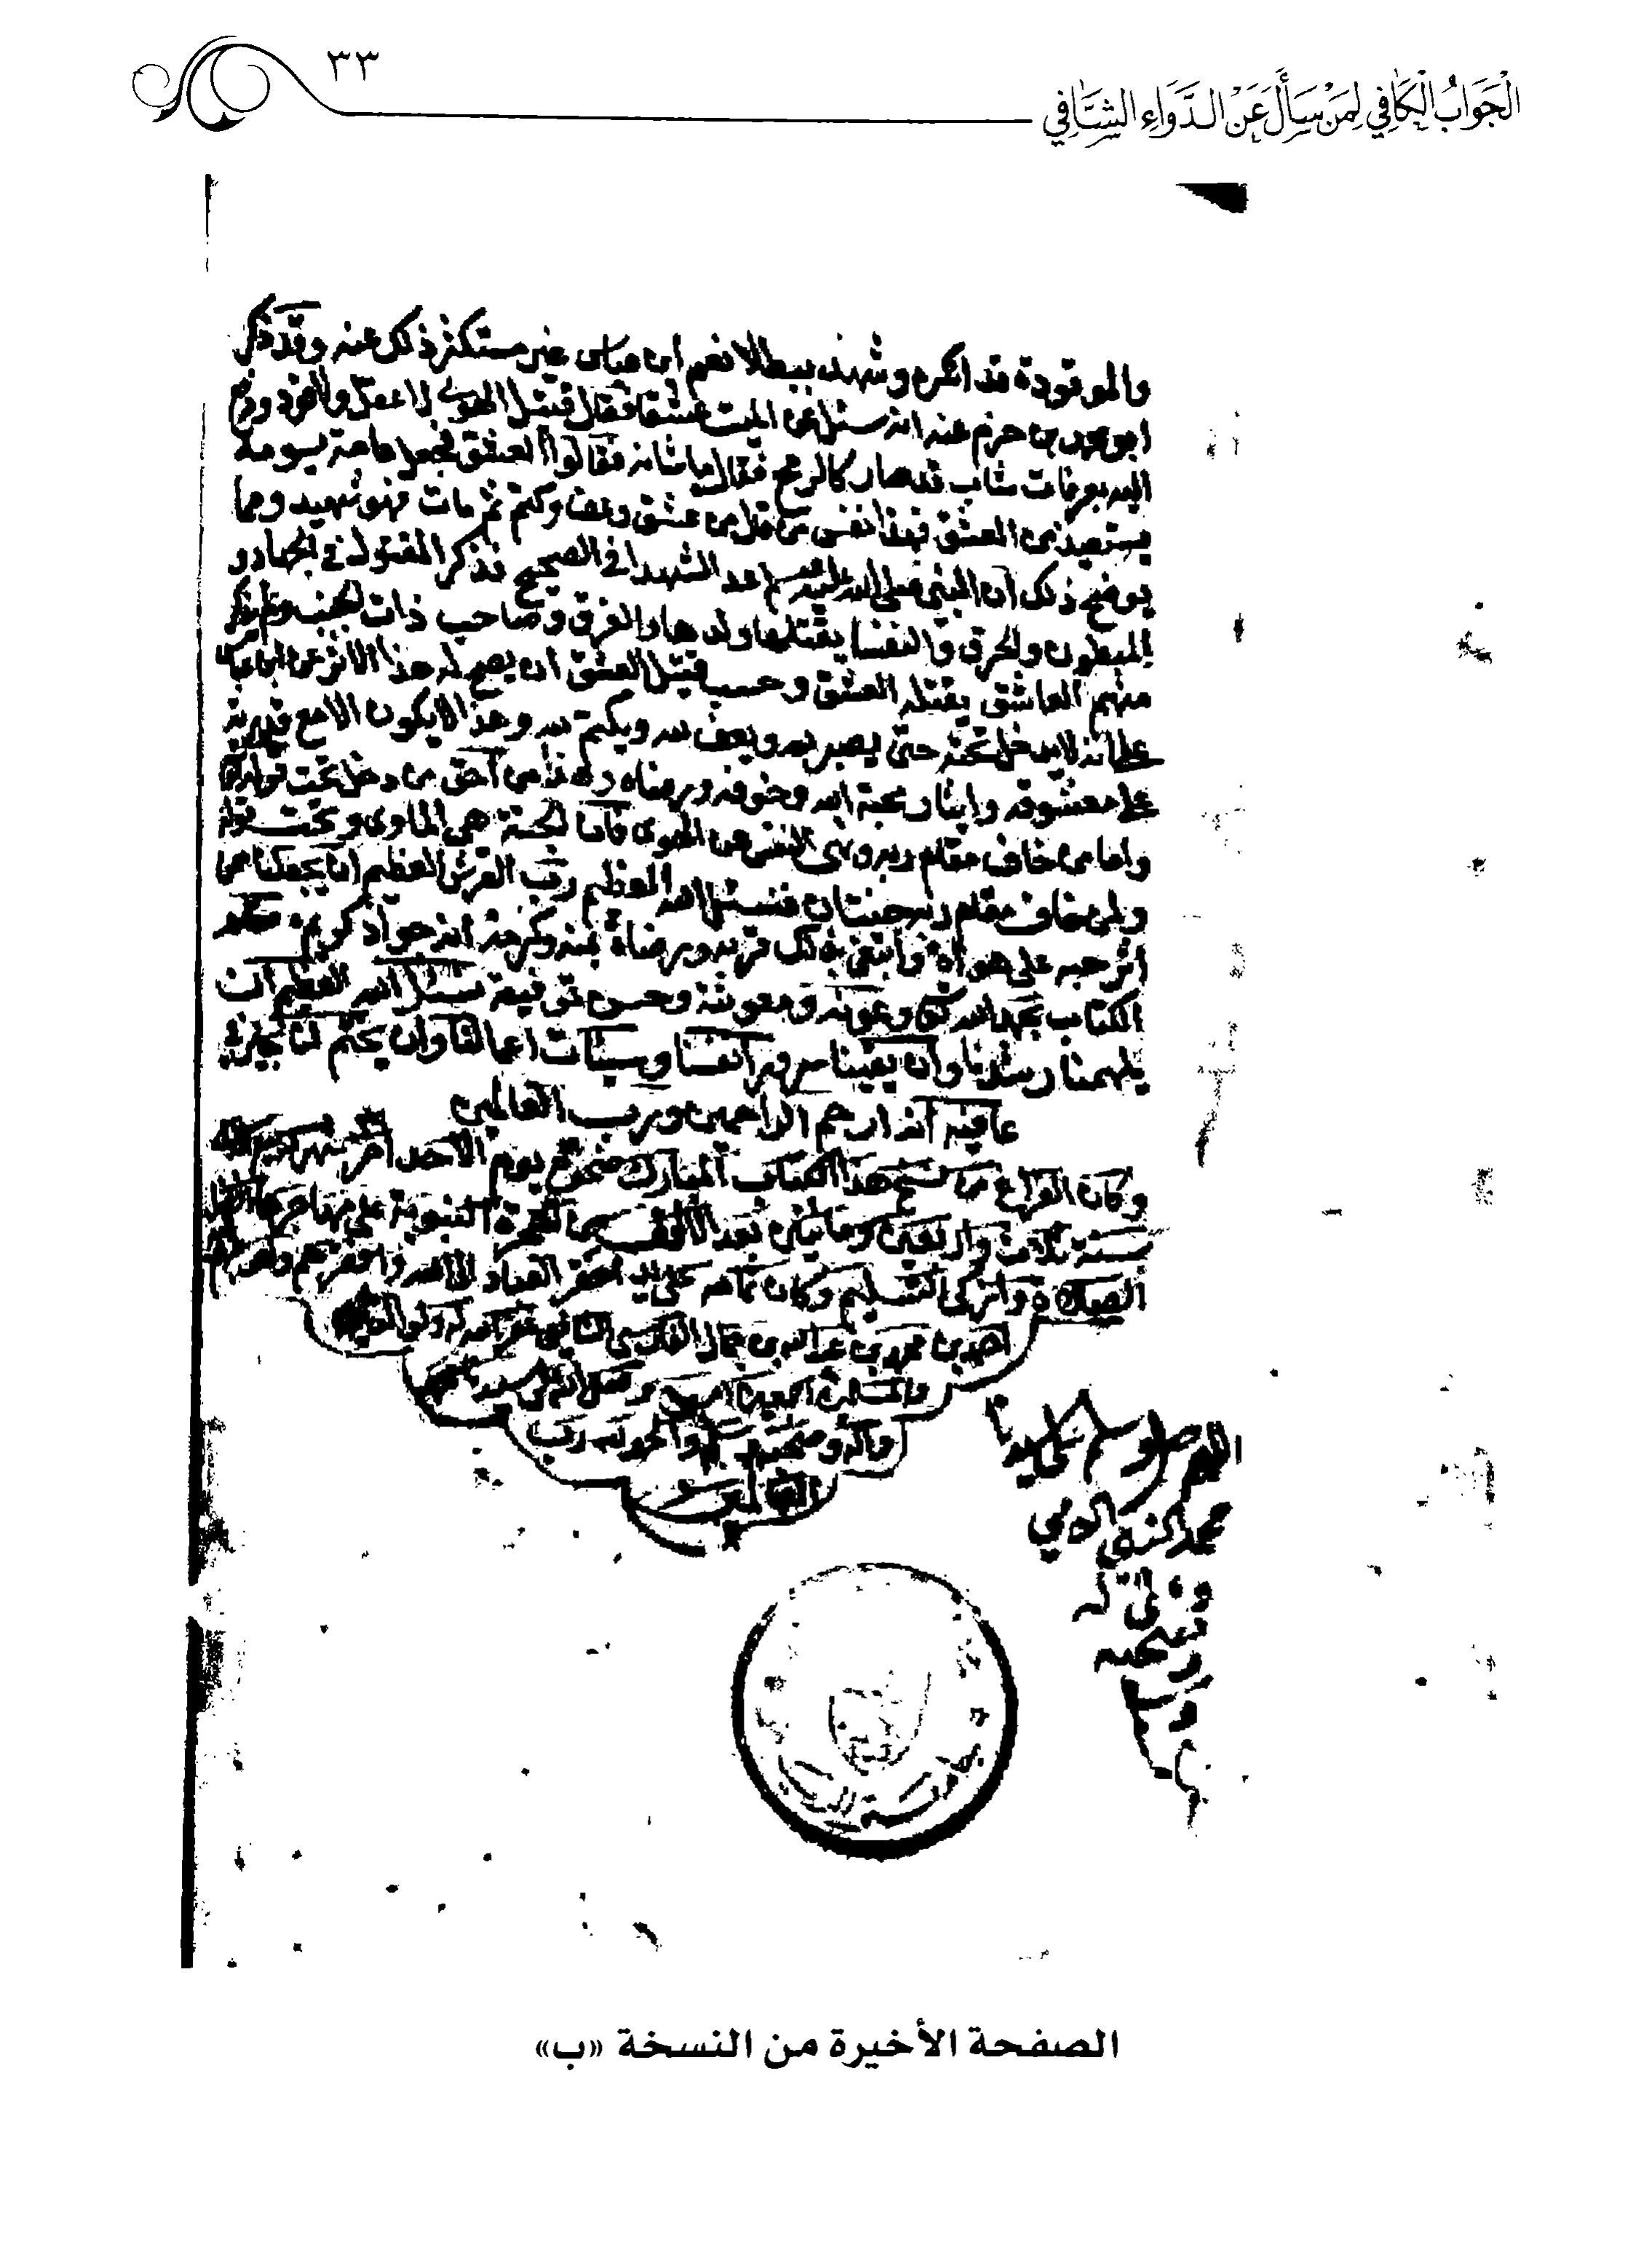 ٣٣
الْجَوَابُ الْكَافِي لِمَنْ سَأَلَ عَنْ الدَّوَاءِ الشَّافِي
قد انكره وشهد ببطلانه نعم ابن عباس غير مستنكر ذلك عنه وقد ذكر
ابو محمد بن حزم عنه انه سئل عن الميت عشقا فقال قتيل الهوى لا عقل ولا قود ورفع
اليه بعرفات شاب قد صار كالفرخ فقال ما شانه فقالوا العشق فجعل عامة يومه
يستعيذ من العشق فهذا نفس من قال من عشق وعف وكتم ثم مات فهو شهيد ومما
يوضح ذلك ان النبي صلى الله عليه وسلم عد الشهدا في الصحيح فذكر المقتول في الجهاد و
المبطون والحرق والنفسا يقتلها ولدها والغرق وصاحب ذات الجنب ولم يذكر
منهم العاشق يقتله العشق وحسب قتيل العشق ان يصح له هذا الاثر عن ابن عباس
على انه لا يدخل تحته حتى يصبر لله ويعف لله ويكتم لله وهذا لا يكون الا مع قدرته
على معشوقه وايثار محبة الله وخوفه ورضاه وهذا من احق من دخل تحت قوله
واما من خاف مقام ربه ونهى النفس عن الهوى فان الجنة هي الماوى وتحت قوله
ولمن خاف مقام ربه جنتان فنسئل الله العظيم رب العرش العظيم ان يجعلنا ممن
اثر حبه على هواه وابتغى بذلك قربه ورضاه بمنه وكرمه انه جواد كريم
الكتاب بحمد الله وعونه ومعونته وحسن توفيقه نسئل الله العظيم ان
يلهمنا رشدنا وان يقينا شرور انفسنا وسيئات اعمالنا وان يختم لنا بخير في
عافيه انه ارحم الراحمين ورب العالمين
وكان الفراغ من نسخ هذا الكتاب المبارك ضحوة يوم الاحد اخر شهر
سنة ثلاث واربعين ومائتين بعد الالف من الهجرة النبوية على مهاجرها افضل
الصلاة وازكى التسليم وكان تمامه على يد احقر العباد الى الله وافقرهم
احمد بن محمد بن عبد الله بن
واله وصحبه وسلم والحمد لله رب
العالمين
اللهم صل وسلم على سيدنا
محمد النبي الامي
وعلى اله
وصحبه
وسلم
الصفحة الأخيرة من النسخة «ب»